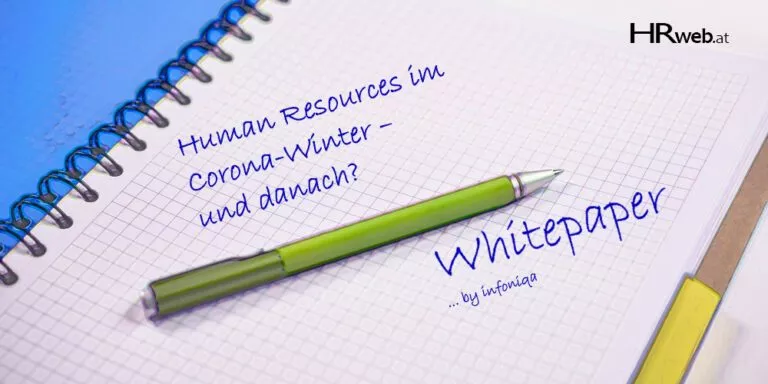 HRweb.at
Human Resources im
Corona-Winter –
und danach?
Whitepaper
... by infoniqa